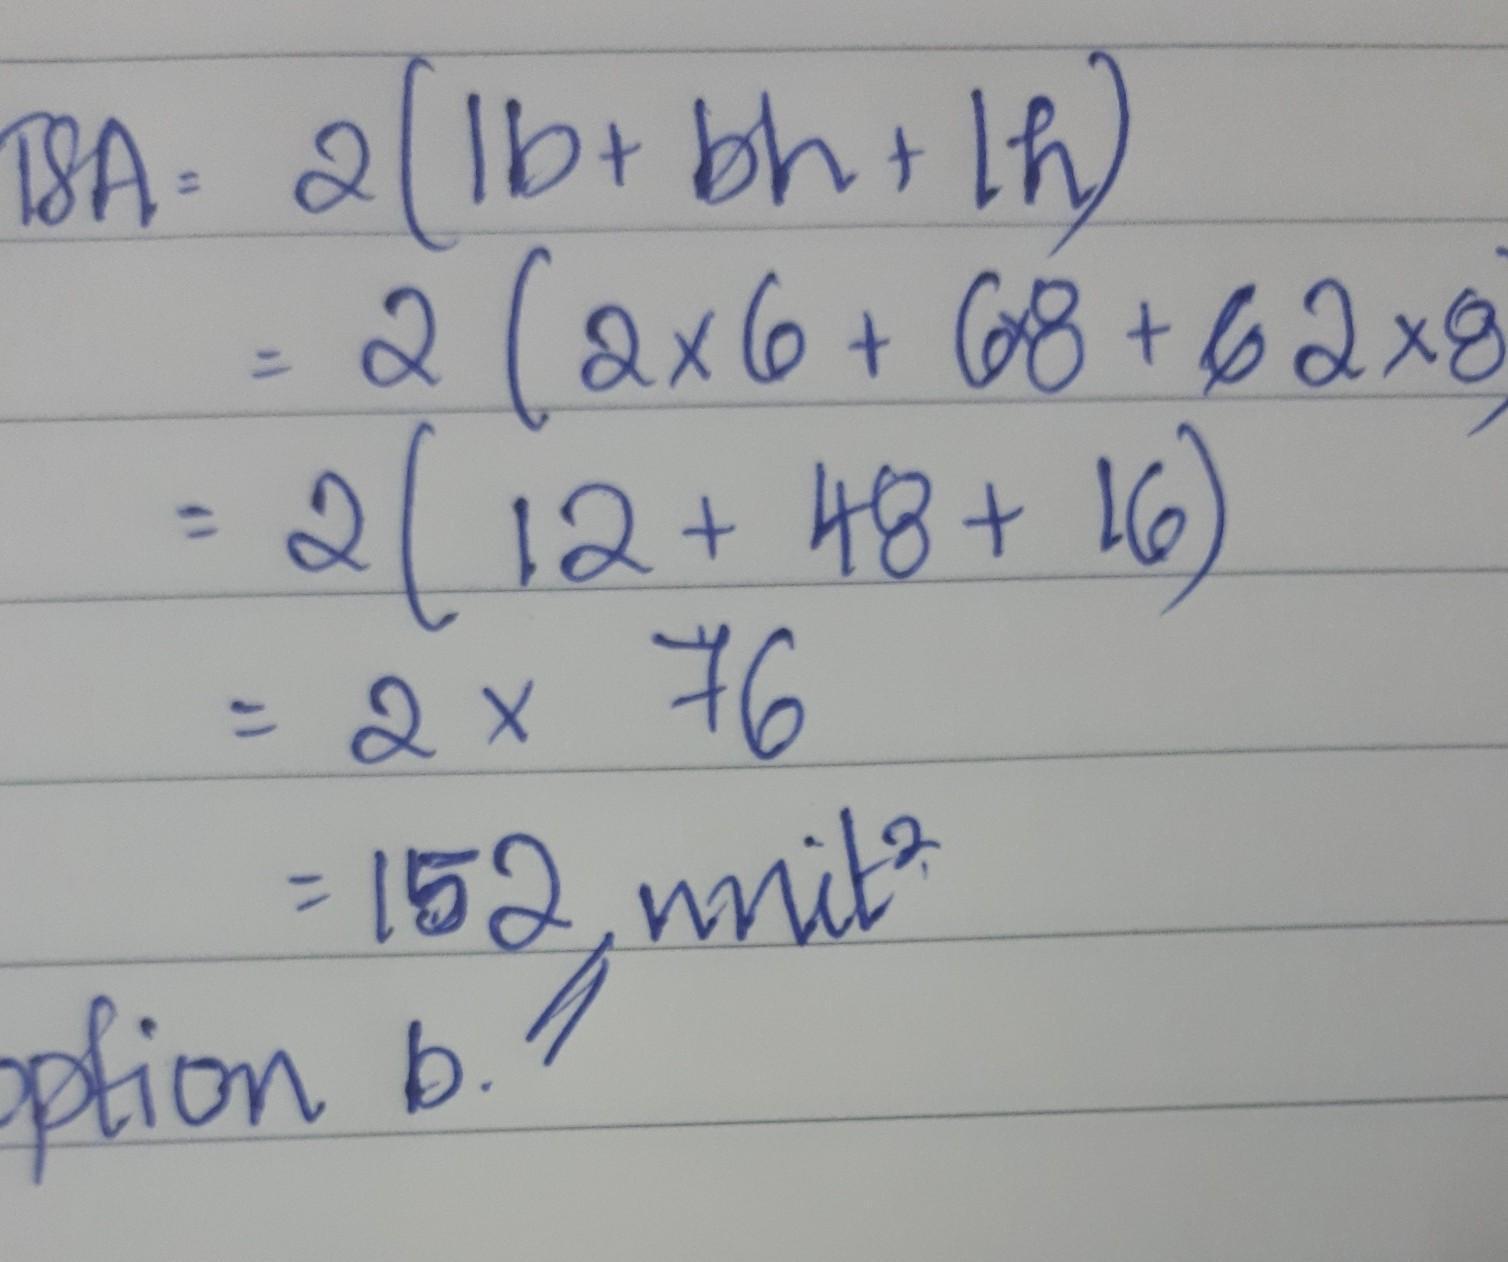 TSA = 2(lb + bh + lh)
= 2(2×6 + 6×8 + 2×8)
= 2(12 + 48 + 16)
= 2 × 76
= 152 unit²
option b.